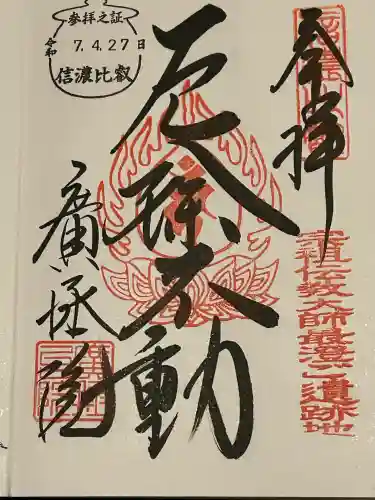 奉拝
宗祖伝教大師最澄ご遺跡地
厄除不動
參拝之証
令和 7.4.27日
信濃比叡
廣拯院